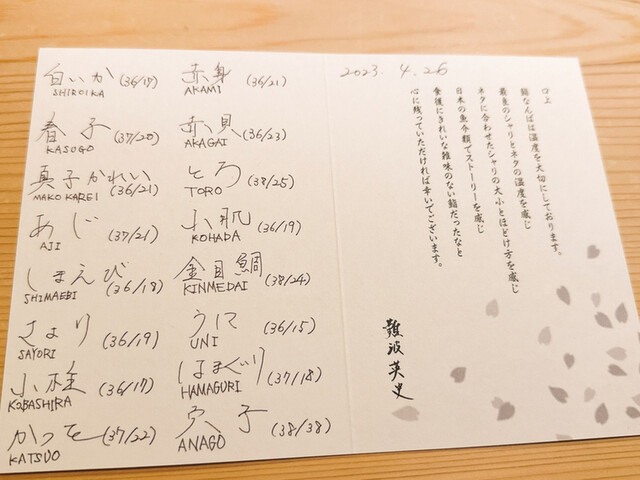 白いか (36/17)
SHIROIKA
春子 (37/20)
KASUGO
真子かれい
MAKO KAREI (36/21)
あじ (37/21)
AJI
しまえび
SHIMAEBI (36/18)
さより (36/19)
SAYORI
小柱 (36/17)
KOBASHIRA
かつを (37/22)
KATSUO
赤身 (36/21)
AKAMI
赤貝 (36/23)
AKAGAI
とろ (38/25)
TORO
小肌 (36/19)
KOHADA
金目鯛 (38/24)
KINMEDAI
うに (36/15)
UNI
はまぐり (37/18)
HAMAGURI
穴子 (38/38)
ANAGO
2023. 4. 26
口上
鮨なんばは温度を大切にしております。
最良のシャリとネタの温度を感じ
ネタに合わせたシャリの大小とほどけ方を感じ
日本の魚介類でストーリーを感じ
食後にきれいな雑味のない鮨だったなと
心に残っていただければ幸いでございます。
難波英史